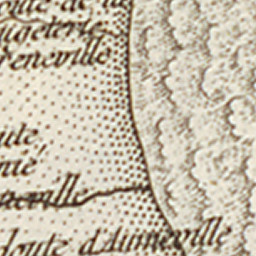 oute de la
ugeterie
reneville
oute,
nie
neville
doute d'Aumeville